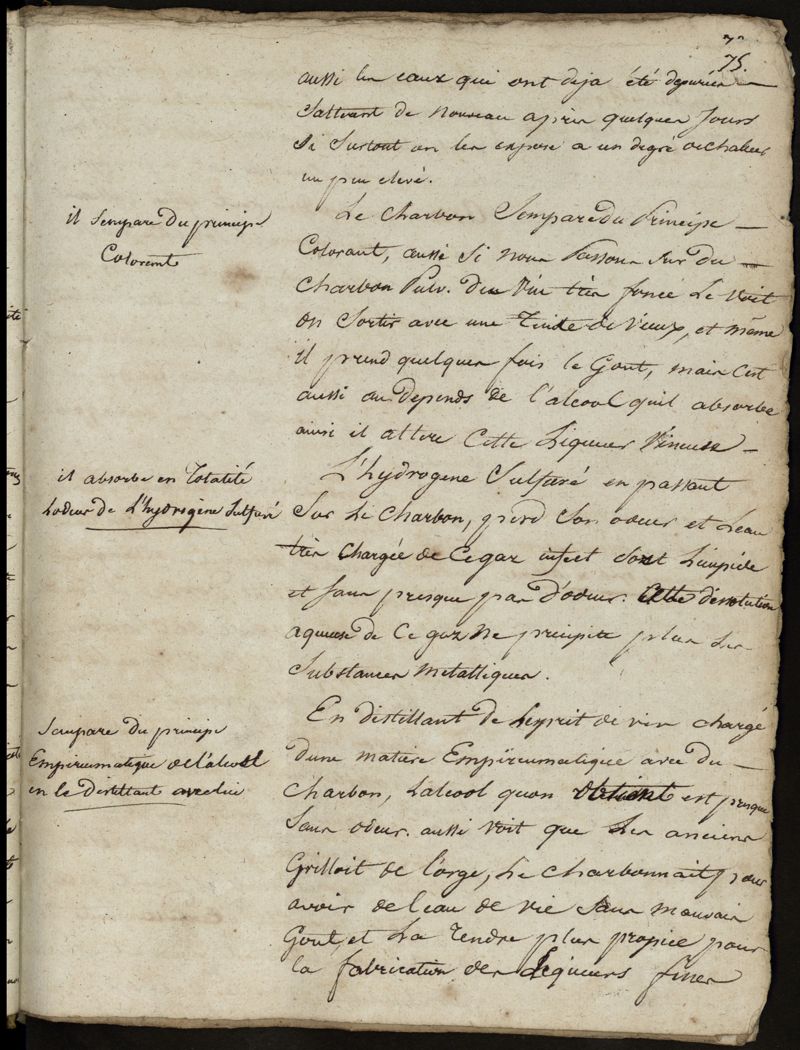 75.
aussi les eaux qui ont deja été depurées
s'alterent de nouveau après quelques Jours
si surtout on les expose a un degré de chaleur
un peu elevé.
il s'empare du principe
Colorant
Le charbon s'empare du Principe
Colorant, aussi si nous Passons sur du
charbon Pulv. du Vin très foncé Le Voit
on sortir avec une Teinte de Vieux, et même
il prend quelques fois le Gout, mais c'est
aussi au depends de l'alcool qu'il absorbe
ainsi il altere cette Liqueur Vineuse
il absorbe en Totalité
Lodeur de L'hydrogène Sulfuré
L'hydrogene Sulfuré en passant
sur Le charbon, perd son odeur et L'eau
très chargée de ce gaz infect sort Limpide
et sans presque pas d'odeur. Cette dissolution
aqueuse de ce gaz ne precipite plus Les
substances metalliques.
S'empare du principe
Empireumatique de l'alcool
en le distillant avec lui
En distillant de L'esprit de vin chargé
d'une matiere Empireumatique avec du
charbon, L'alcool qu'on obtient est presque
sans odeur. aussi Voit que Les anciens
Grilloit de l'orge, Le charbonnait pour
avoir de l'eau de vie sans mauvais
Gout, et La rendre plus propice pour
la fabrication des Liqueurs fines